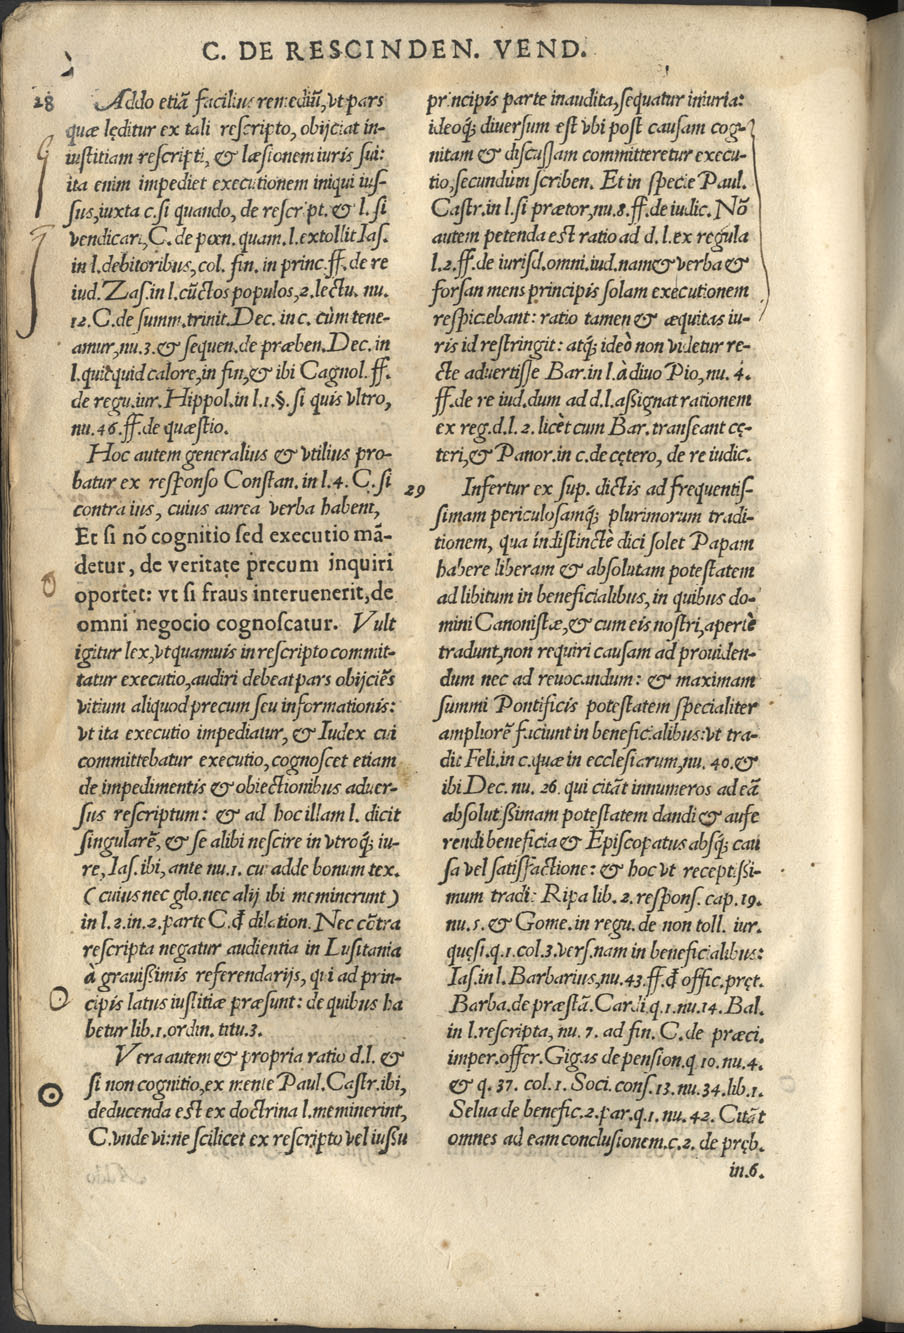 C. DE RESCINDEN. VEND.
28 Addo etiã facilius remediũ, vt pars
quæ lęditur ex tali rescripto, obijciat in-
iustitiam rescripti, & læsionem iuris sui:
ita enim impediet executionem iniqui ius-
sus, iuxta c. si quando, de rescript. & l. si
vendicari, C. de pœn. quam. l. extollit Ias.
in l. debitoribus, col. fin. in princ. ff. de re
iud. Zas. in l. cũctos populos, 2. lectu. nu.
12. C. de summ. trinit. Dec. in c. cùm tene-
amur, nu. 3. & sequen. de præben. Dec. in
l. quicquid calore, in fin, & ibi Cagnol. ff.
de regu. iur. Hippol. in l. 1. §. si quis vltro,
nu. 46. ff. de quæstio.
Hoc autem generalius & vtilius pro-
batur ex responso Constan. in l. 4. C. si
contra ius, cuius aurea verba habent,
Et si nõ cognitio sed executio mã-
detur, de veritate precum inquiri
oportet: vt si fraus interuenerit, de
omni negocio cognoscatur. Vult
igitur lex, vt quamuis in rescripto commit-
tatur executio, audiri debeat pars obijciẽs
vitium aliquod precum seu informationis:
vt ita executio impediatur, & Iudex cui
committebatur executio, cognoscet etiam
de impedimentis & obiectionibus aduer-
sus rescriptum: & ad hoc illam l. dicit
singularẽ, & se alibi nescire in vtroq́; iu-
re, Ias. ibi, ante nu. 1. cui adde bonum tex.
(cuius nec glo. nec alij ibi meminerunt)
in l. 2. in. 2. parte C. đ dilation. Nec cõtra
rescripta negatur audientia in Lusitania
à grauißimis referendarijs, qui ad prin-
cipis latus iustitiæ præsunt: de quibus ha
betur lib. 1. ordin. titu. 3.
Vera autem & propria ratio d. l. &
si non cognitio, ex mente Paul. Castr. ibi,
deducenda est ex doctrina l. meminerint,
C. vnde vi: ne scilicet ex rescripto vel iussu
principis parte inaudita, sequatur iniuria:
ideoq́; diuersum est vbi post causam cog-
nitam & discussam committeretur execu-
tio, secundùm scriben. Et in specie Paul.
Castr. in l. si prætor, nu. 8. ff. de iudic. Nõ
autem petenda est ratio ad d. l. ex regula
l. 2. ff. de iurisd. omni. iud. nam & verba &
forsan mens principis solam executionem
respiciebant: ratio tamen & æquitas iu-
ris id restringit: atq́; ideò non videtur re-
cte aduertisse Bar. in l. à diuo Pio, nu. 4.
ff. de re iud. dum ad d. l. aßignat rationem
ex reg. d. l. 2. licèt cum Bar. transeant cę-
teri, & Panor. in c. de cętero, de re iudic.
29 Infertur ex sup. dictis ad frequentis-
simam periculosamq́; plurimorum tradi-
tionem, qua indistinctè dici solet Papam
habere liberam & absolutam potestatem
ad libitum in beneficialibus, in quibus do-
mini Canonistæ, & cum eis nostri, apertè
tradunt, non requiri causam ad prouiden-
dum nec ad reuocandum: & maximam
summi Pontificis potestatem specialiter
ampliorẽ faciunt in beneficialibus: vt tra-
dit Feli. in c. quæ in ecclesiarum, nu. 40. &
ibi Dec. nu. 26. qui citãt innumeros ad eã
absolutißimam potestatem dandi & aufe
rendi beneficia & Episcopatus absq́; cau
sa vel satisfactione: & hoc vt receptißi-
mum tradit Ripa lib. 2. respons. cap. 19.
nu. 5. & Gome. in regu. de non toll. iur.
quęsi. q. 1. col. 3. vers. nam in beneficialibus:
Ias. in l. Barbarius, nu. 43. ff. đ offic. pręt.
Barba. de præstã. Cardi. q. 1. nu. 14. Bal.
in l. rescripta, nu. 7. ad fin. C. de præci.
imper. offer. Gigas de pension. q 10. nu. 4.
& q. 37. col. 1. Soci. cons. 13. nu. 34. lib. 1.
Selua de benefic. 2. par. q. 1. nu. 42. Citãt
omnes ad eam conclusionem. c. 2. de pręb.
in. 6.